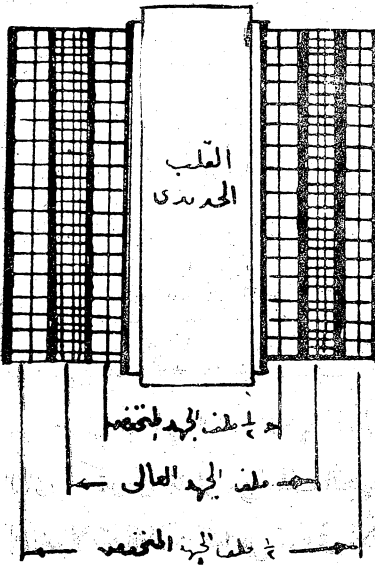 القلب
الحديدى
½ ملف الجهد المنخفض
ملف الجهد العالى
½ ملف الجهد المنخفض